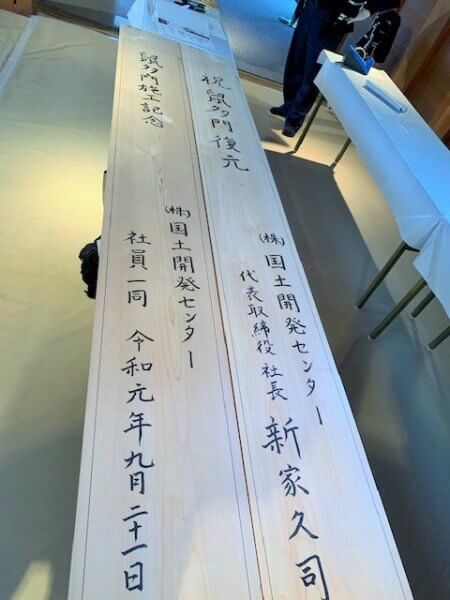 祝鼠多門復元
㈱国土開発センター
代表取締役社長 新家久司
鼠多門施工記念
㈱国土開発センター
社員一同 令和元年九月二十一日